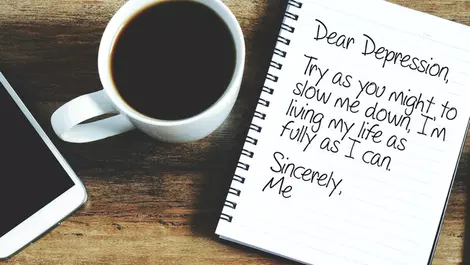 Dear Depression,
Try as you might to
slow me down, I'm
living my life as
fully as I can.
Sincerely,
Me